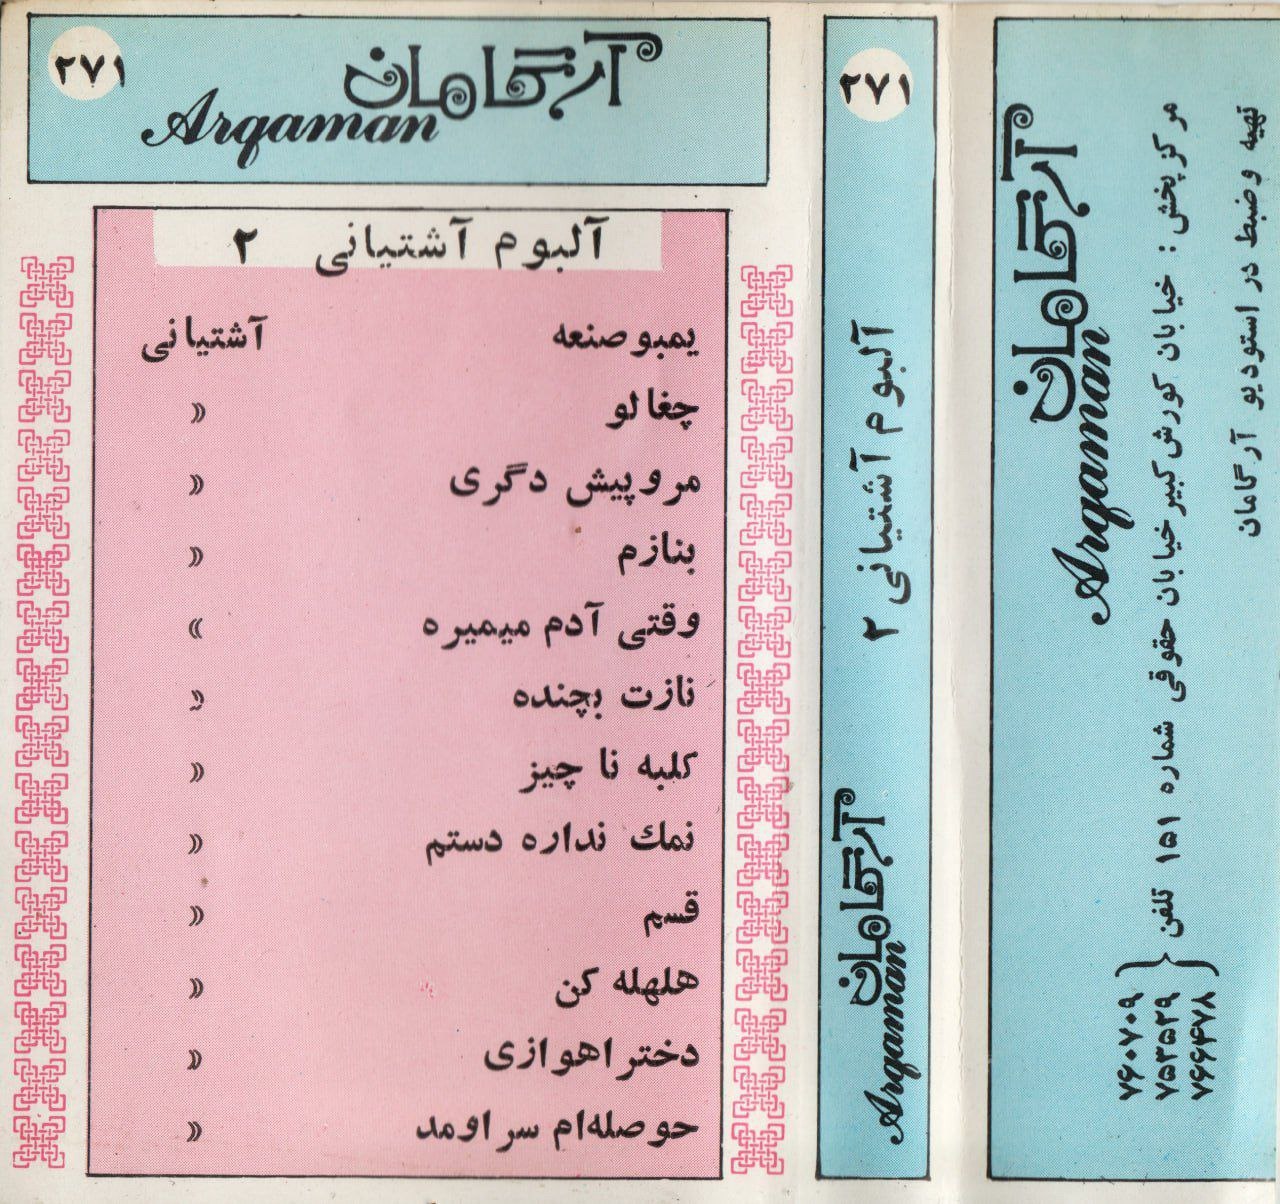 ۲۷۱
آرگامان
Arqaman
آلبوم آشتیانی ۲
یمبو صنعه آشتیانی
چغالو »
مر و پیش دگری »
بنازم »
وقتی آدم میمیره »
نازت بچنده »
کلبه نا چیز »
نمك نداره دستم »
قسم »
هلهله کن »
دختر اهوازی »
حوصله‌ام سر اومد »
۲۷۱
آلبوم آشتیانی ۲
آرگامان
Arqaman
آرگامان
Arqaman
مرکز پخش : خیابان کورش کبیر خیابان حقوقی شماره ۱۵۱ تلفن
۷۶۰۷۰۹
۷۵۳۵۲۹
۷۶۶۴۷۸
تهیه و ضبط در استودیو آرگامان